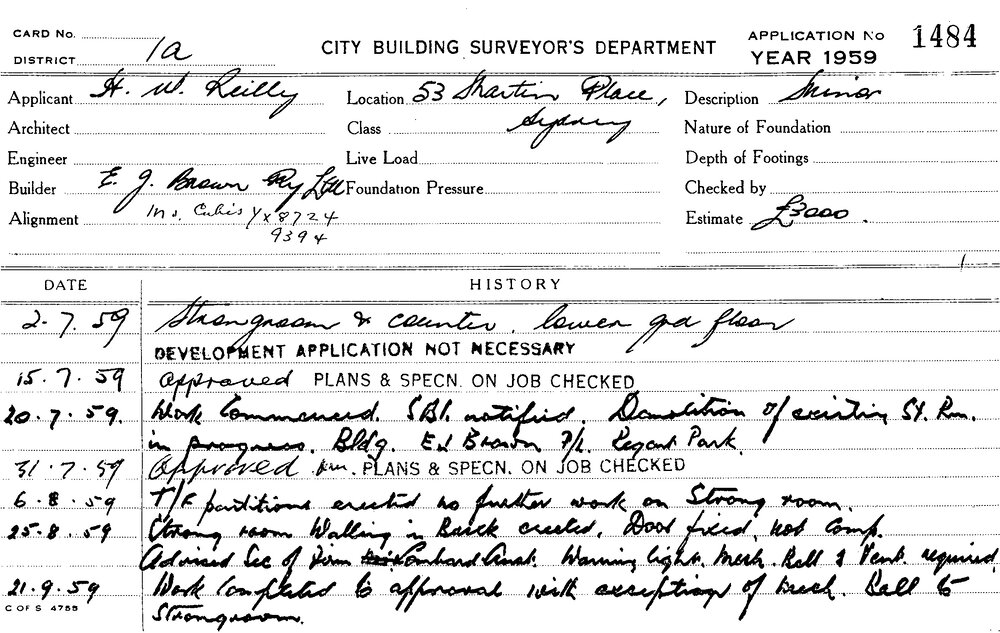 CARD No.
DISTRICT 1a
CITY BUILDING SURVEYOR'S DEPARTMENT
APPLICATION No 1484
YEAR 1959
Applicant H. W. Reilly
Location 53 Martin Place,
Description Minor
Architect
Class Sydney
Nature of Foundation
Engineer
Live Load
Depth of Footings
Builder E. J. Brown Pty Ltd
Foundation Pressure
Checked by
Alignment Ins. Cubis YX8724
9394
Estimate £3000.
DATE HISTORY
2.7.59 Strongroom & counter. lower grd floor
DEVELOPMENT APPLICATION NOT NECESSARY
15.7.59 Approved PLANS & SPECN. ON JOB CHECKED
20.7.59. Work Commenced. SBI. notified. Demolition of existing St. Rm.
in progress. Bldg. EJ Brown P/L. Regent Park
31.7.59 Approved PLANS & SPECN. ON JOB CHECKED
6.8.59 T/F partitions erected no further work on Strong room.
25.8.59 Strong room Walling in Brick erected. Door fixed, not comp.
Advised Sec of Firm Lombard Aust. Warning light. Mech. Bell & Vent. required
21.9.59 Work Completed to approval with exception of Mech. Bell to
C OF S 4755
Strongroom.